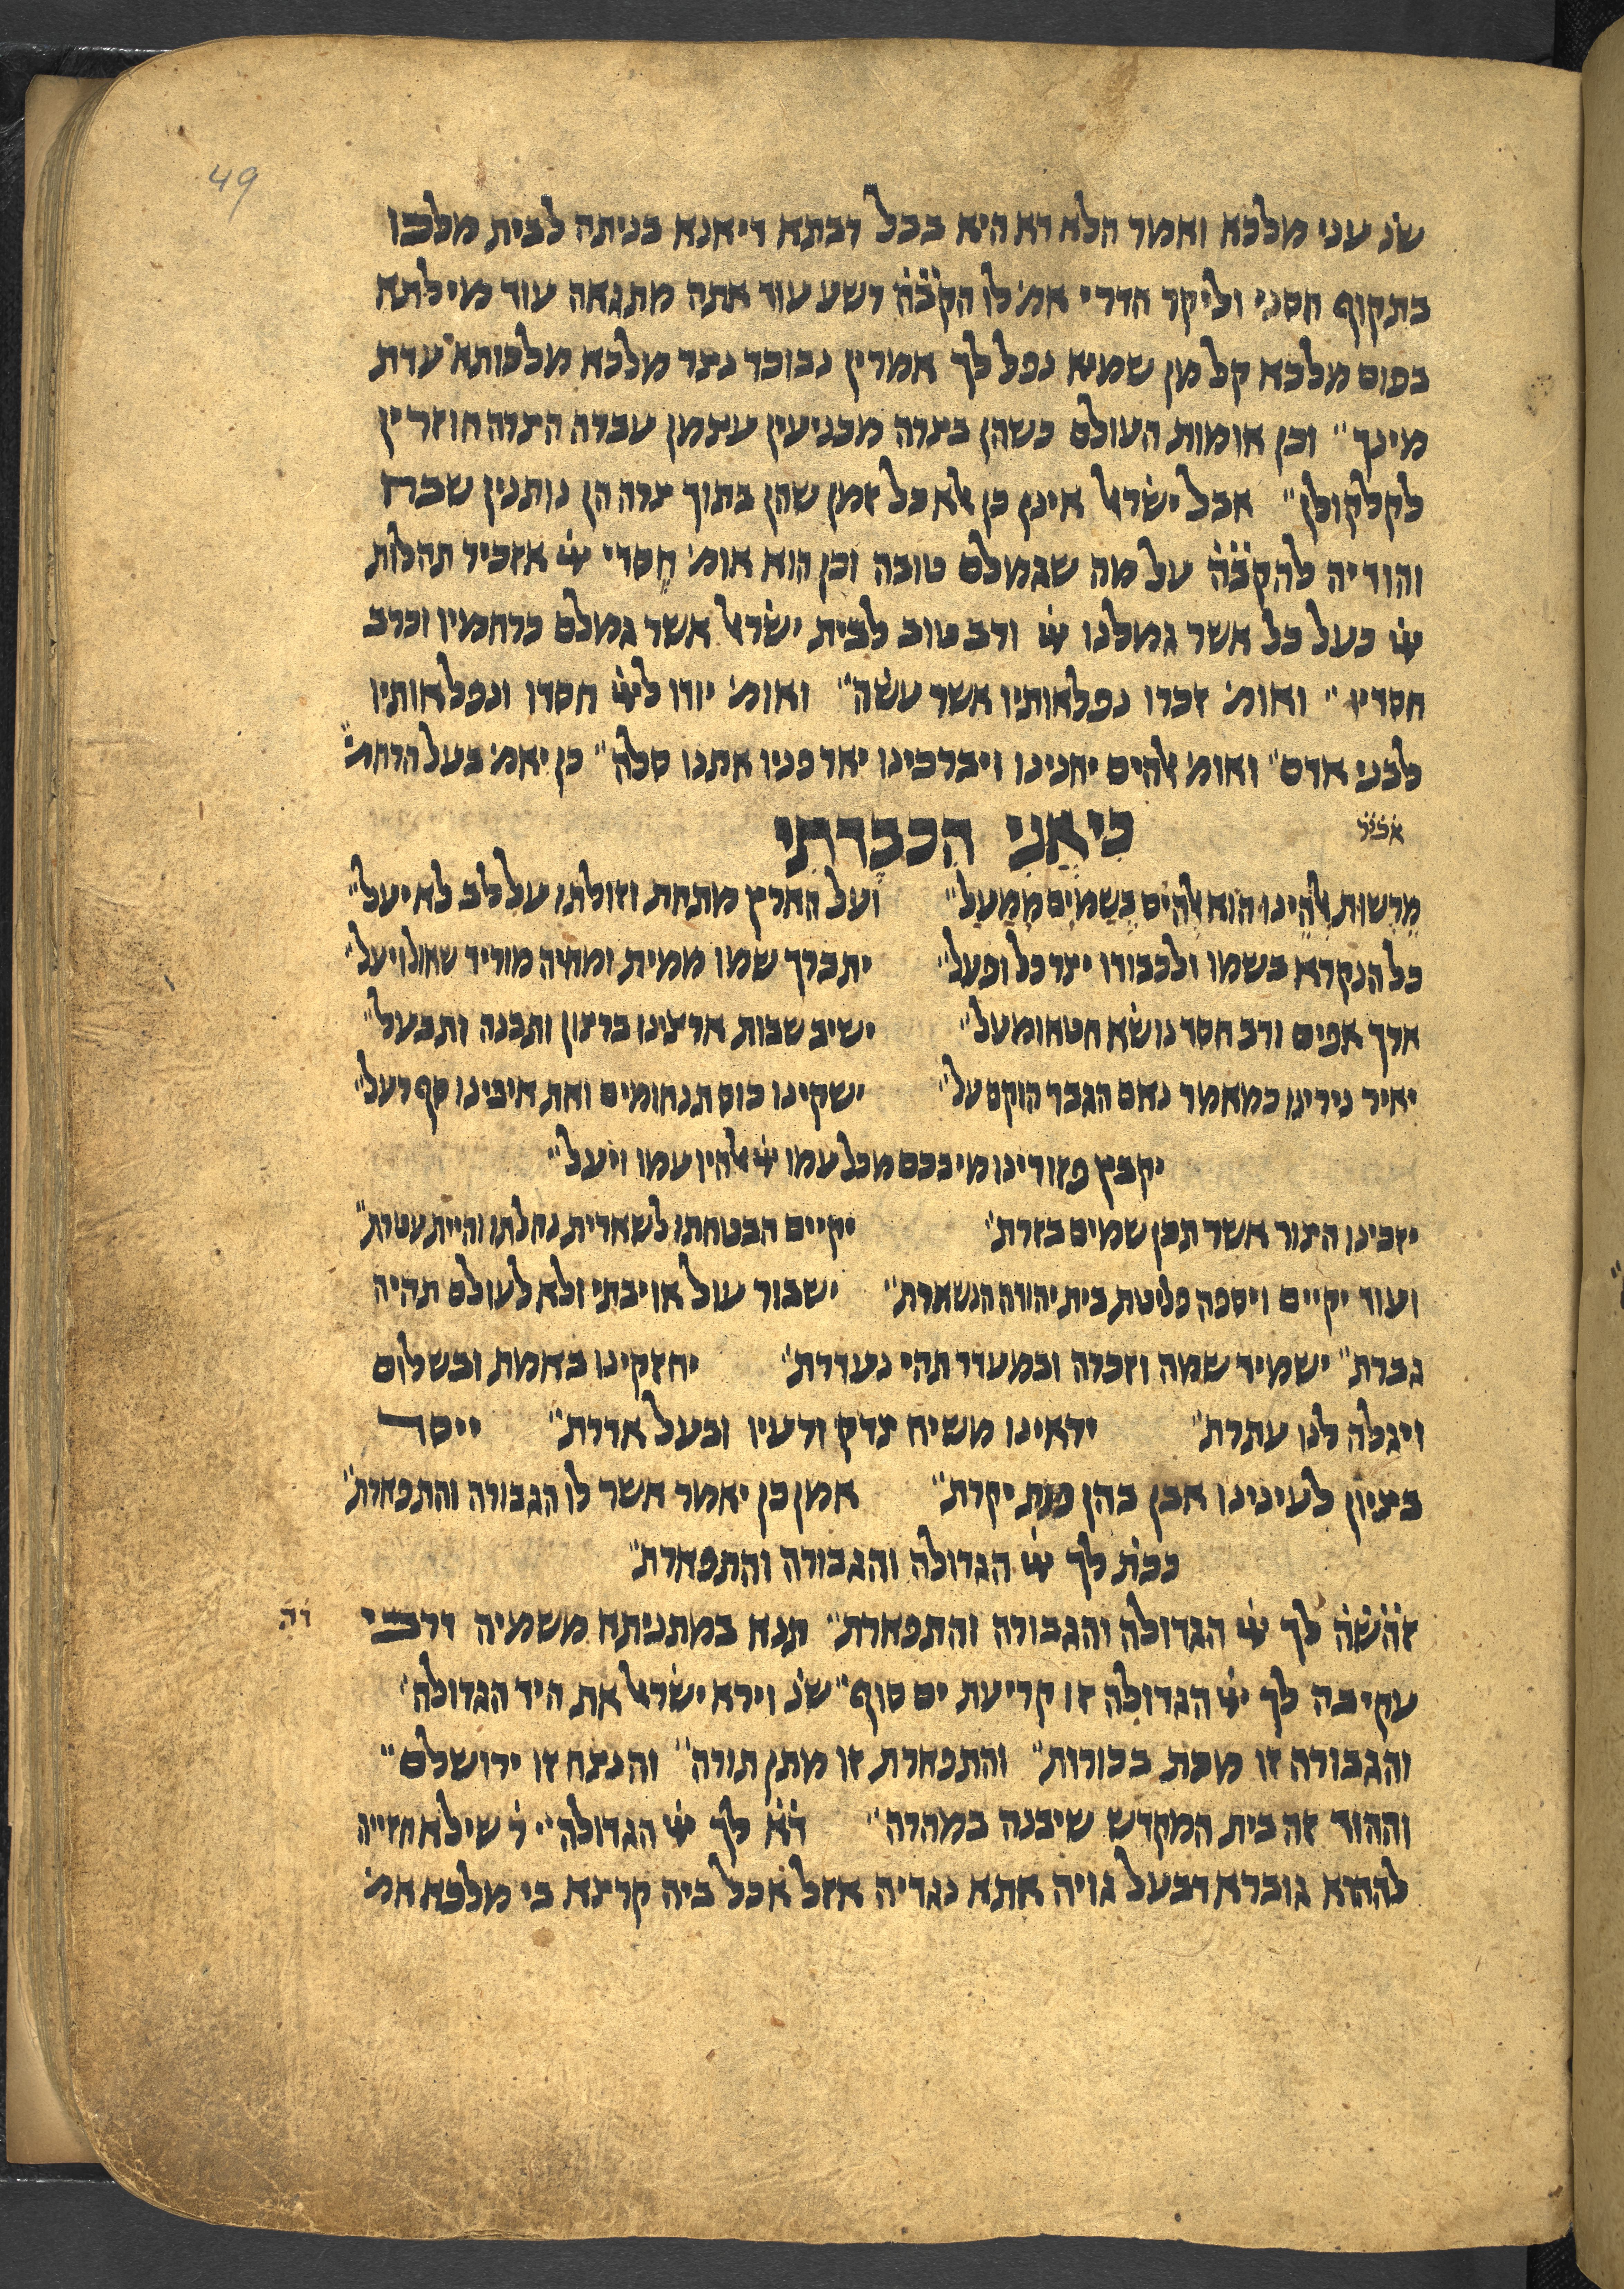 49
שנ׳ עני מלכא ואמר הלא דא היא בבל רבתא דיאנא בניתה לבית מלכו
בתקוף חסני וליקר הדרי אמ׳ לו הקב̇ה̇ רשע עוד אתה מתגאה עוד מילתא
בפום מלכא קל מן שמיא נפל לך אמרין נבוכד נצר מלכא מלכותא עדת
מינך״ וכן אומות העולם כשהן בצרה מכניעין עצמן עברה הצרה חוזרין
לקלקולן״ אבל ישׂרﭏ אינן כן ﭏא כל זמן שהן בתוך צרה הן נותנין שבח
והודיה להקב̇ה̇ על מה שגמלם טובה וכן הוא אומ׳ חסדי ײ֗ אזכיר תהלות
ײ֗ כעל כל אשר גמלנו ײ֗ ורב טוב לבית ישׂרﭏ אשר גמלם כרחמיו וכרב
חסדיו״ ואומ׳ זכרו נפלאותיו אשר עשׂה״ ואומ׳ יודו לײ֗ חסדו ונפלאותיו
לבני אדם״ ואומ׳ ﭏהים יחנינו ויברכינו יאר פניו אתנו סלה״ כן יאמ׳ בעל הרחמ׳״
כִי אֲנִי הִכבַדתִי
מֵרְשוּת ﭏהֵינוּ הוּא ﭏהִים בַשָמַיִם מִמַעַל״ ועל הארץ מתחת וזולתו על לב לא יעל״
כל הנקרא בשמו ולכבודו יצר כל ופעל״ יתברך שמו ממית ומחיה מוריד שאול ויעל״
ארך אפים ורב חסד נושׂא חטא ומעל״ ישיב שבות ארצינו ברצון ותבנה ותבעל״
יאיר נירינו כמאמר נאם הגבר הוקם על״ ישקינו כוס תנחומים ואת איבינו סף רעל״
יקבץ פזורינו מי בכם מכל עמו ײ֗ ﭏהיו עמו ויעל״
יזכינו הצור אשר תכן שמים בזרת״ יקיים הבטחתו לשארית נחלתו והיית עטרת״
ועוד יקיים ויספה פליטת בית יהודה הנשארת״ ישבור עול אויבתי ולא לעולם תהיה
גברת״ ישמיד שמה וזכרה ובמעדר תהי נעדרת״ יחזקינו באמת ובשלום
ויגלה לנו עתרת״ יראינו משיח צדק ורעיו ובעל אדרת״ וייסר
בציון לעינינו אבן בחן פנת יקרת״ אמן כן יאמר אשר לו הגבורה והתפארת״
ככת׳ לך ײ֗ הגדולה והגבורה והתפארת״
זהשׂ̇ה̇ לך ײ֗ הגדולה והגבורה והתפארת״ תנא במתניתא משמיה דרבי
עקיבה לך ײ֗ הגדולה זו קריעת ים סוף״ שנ׳ וירא ישׂרﭏ את היד הגדולה״
והגבורה זו מכת בכורות״ והתפארת זו מתן תורה״ והנצח זו ירושלם״
וההוד זה בית המקדש שיבנה במהרה״ ד̇א̇ לך ײ֗ הגדולה״ ר׳ שילא חזייה
לההוא גוברא דבעל גויה אתא נגדיה אזל אכל ביה קרצא בי מלכא אמ׳